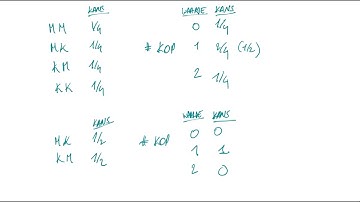 KANS WAARDE KANS
MM 1/4 0 1/4
MK 1/4 # KOP 1 2/4 (1/2)
KM 1/4 2 1/4
KK 1/4
KANS WAARDE KANS
MK 1/2 # KOP 0 0
KM 1/2 1 1
2 0